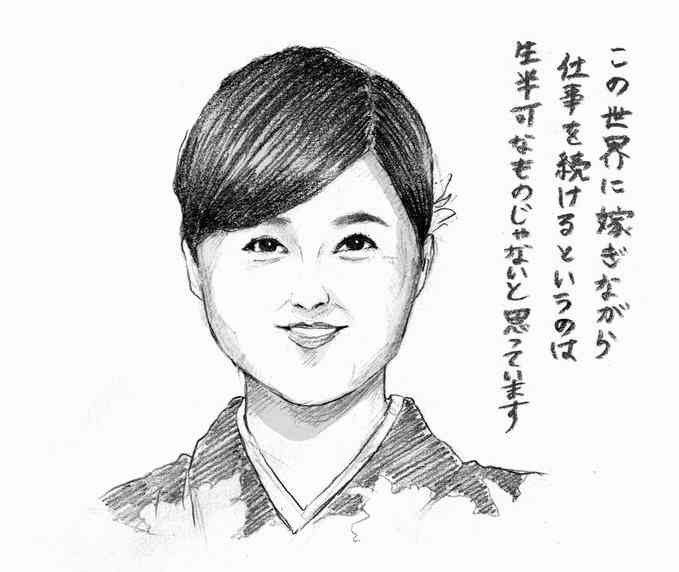 この世界に嫁ぎながら
仕事を続けるというのは
生半可なものじゃないと思っています